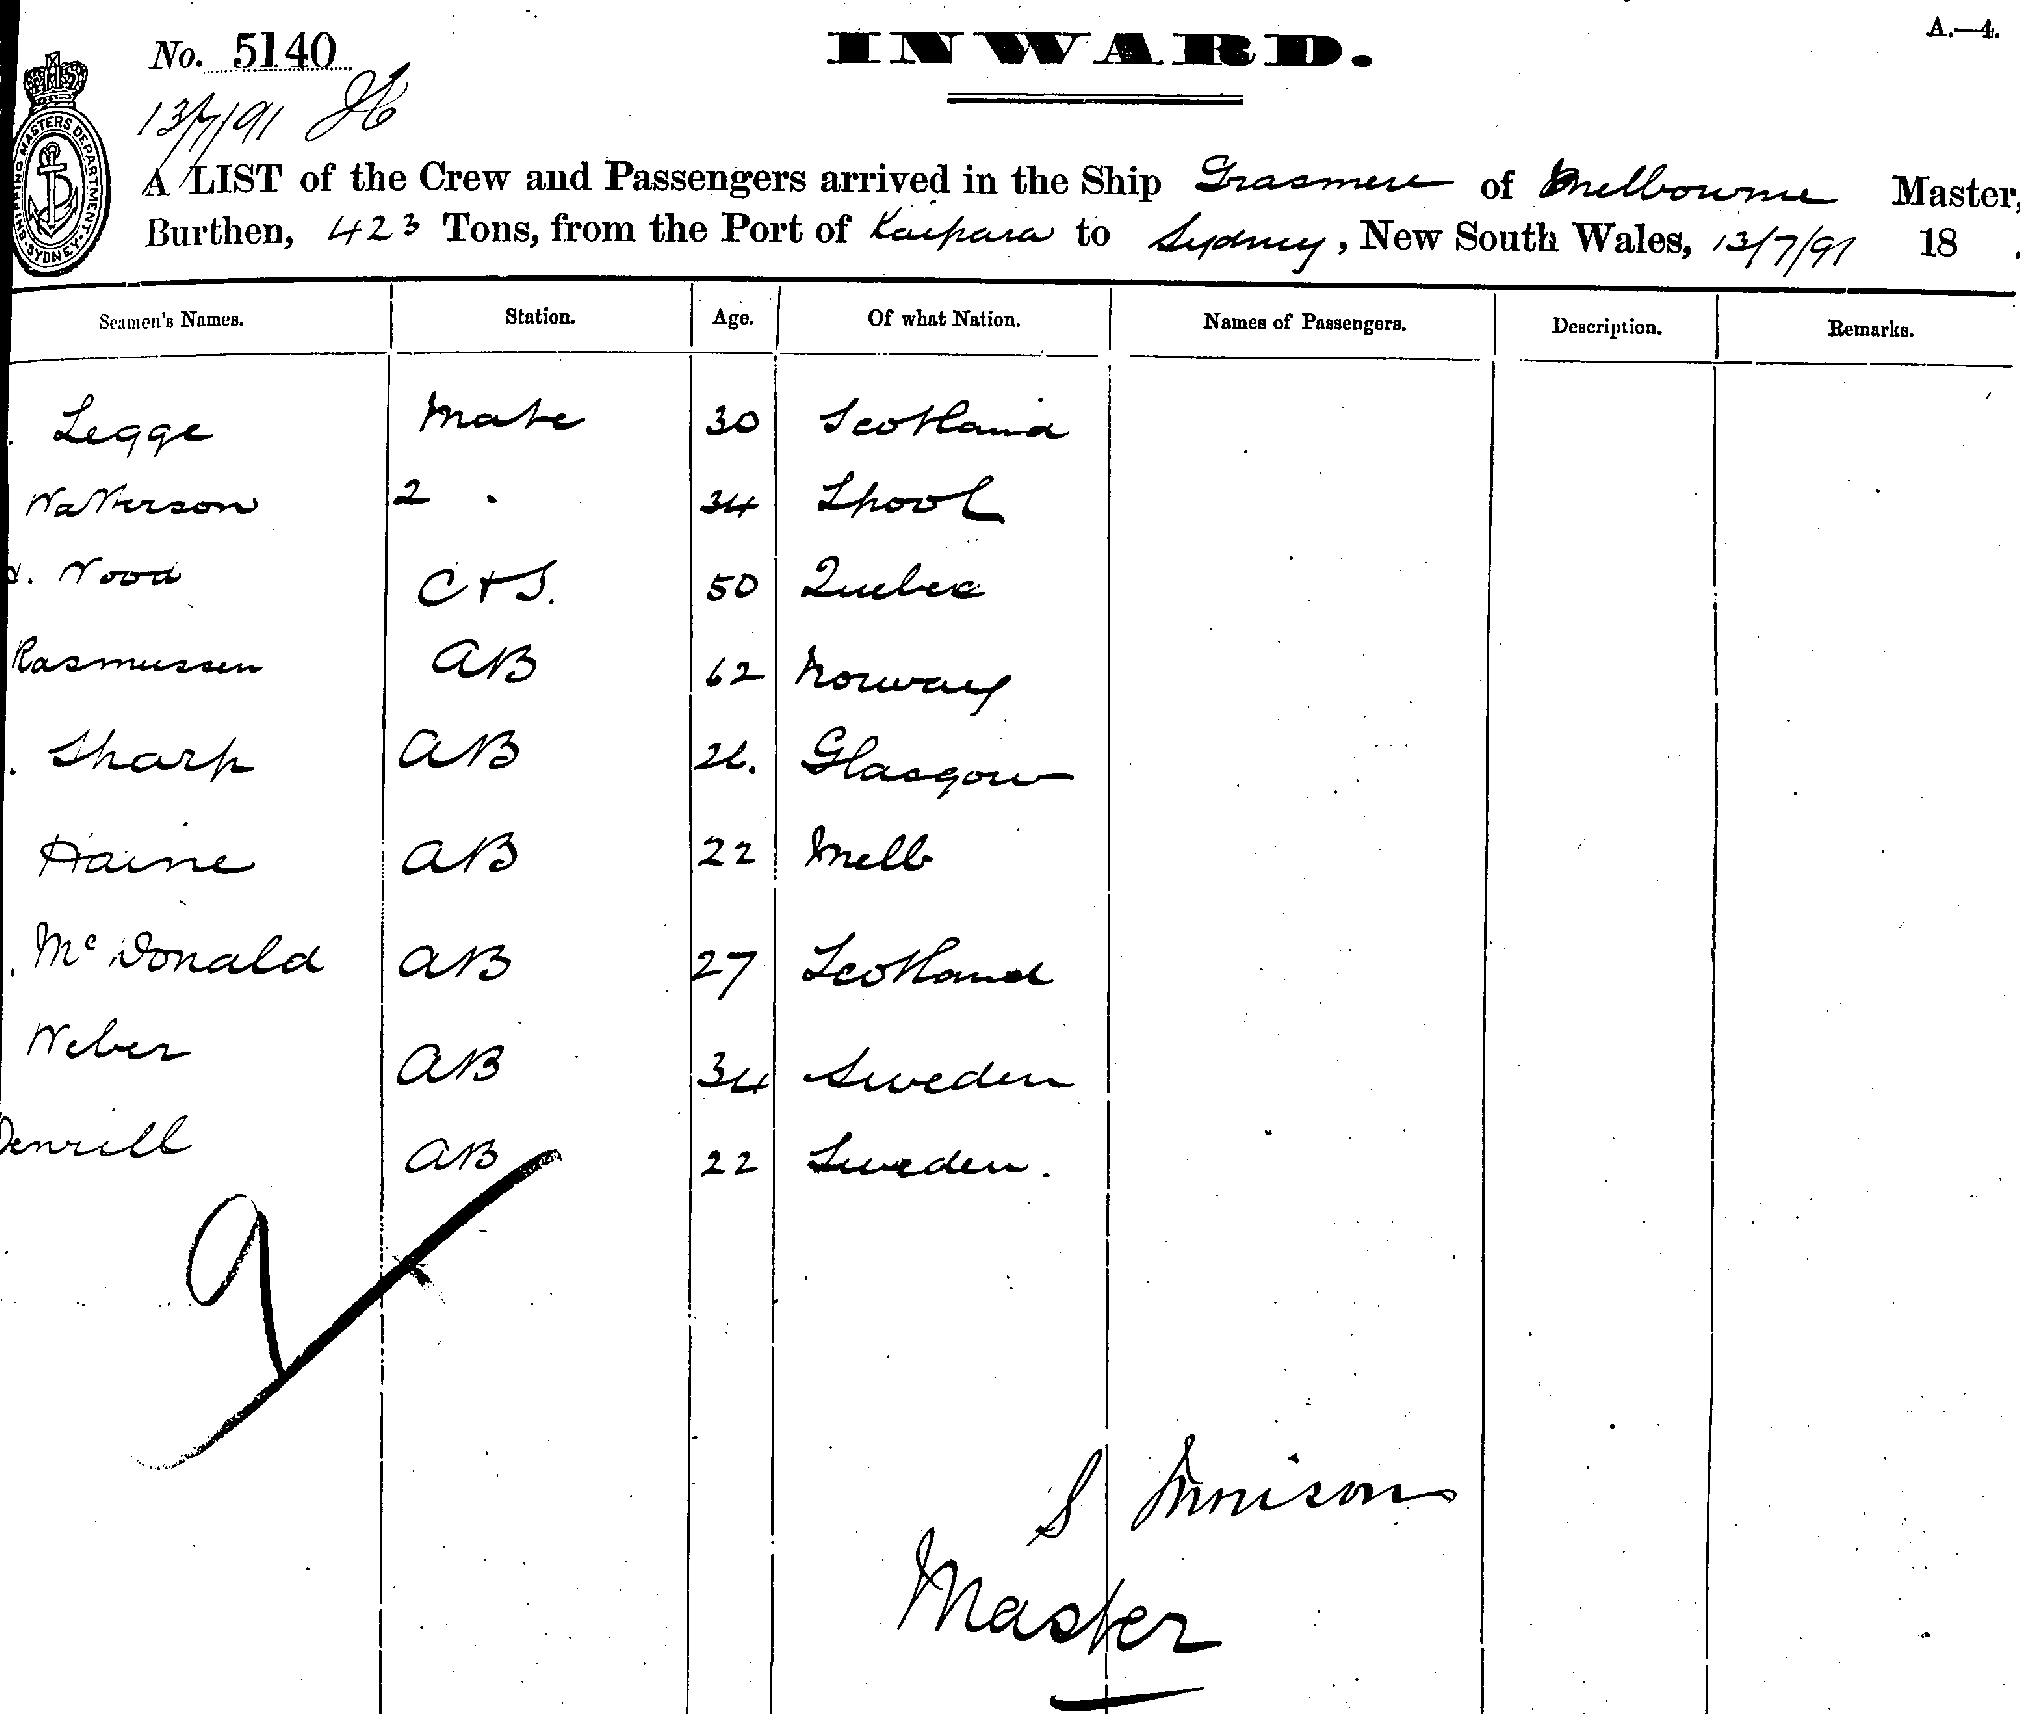 No. 5140 INWARD. A.—4.
13/7/91
SHIPPING MASTERS DEPARTMENT. SYDNEY
A LIST of the Crew and Passengers arrived in the Ship Grasmere of Melbourne Master,
Burthen, 423 Tons, from the Port of Kaipara to Sydney, New South Wales, 13/7/91 18 .
Seamen's Names. Station. Age. Of what Nation. Names of Passengers. Description. Remarks.
Legge Mate 30 Scotland
Watterson 2 . 34 Lpool
Wood C & S. 50 Quebec
Rasmussen AB 62 Norway
Sharp AB 26. Glasgow
Haine AB 22 Melb
McDonald AB 27 Scotland
Weber AB 34 Sweden
AB 22 Sweden.
9
S Morrison
Master